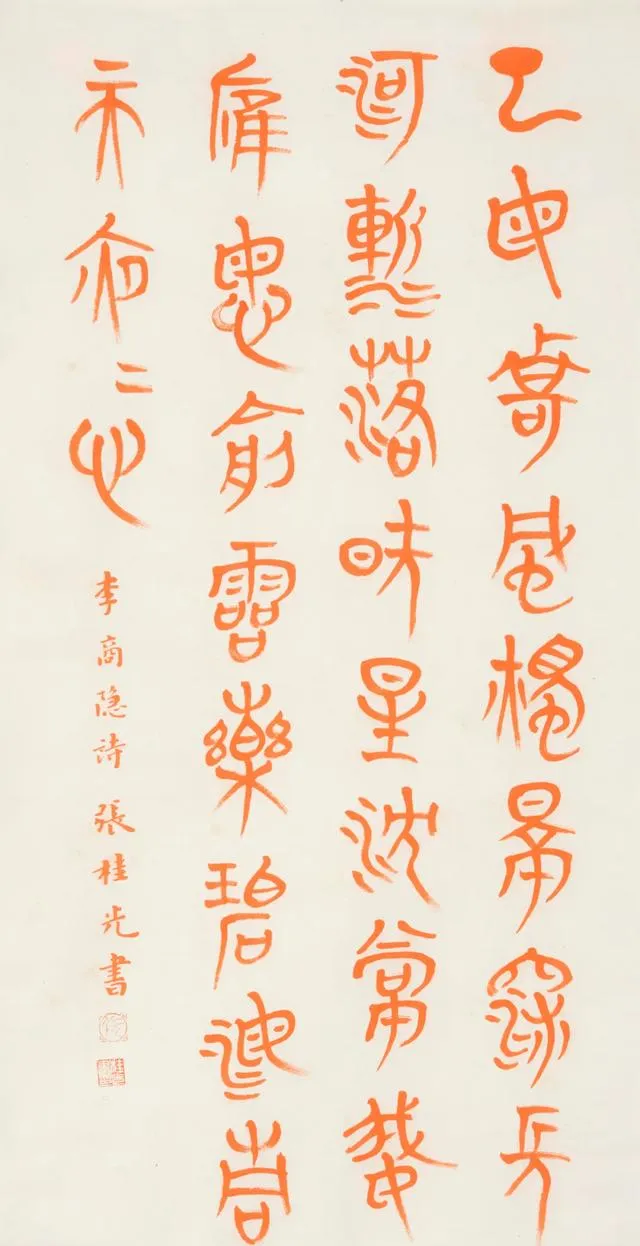 云母屏風燭影深長
河漸落昧星沈常娥
應悔偷靈藥碧海青
天夜二心
李商隐詩 張桂光書